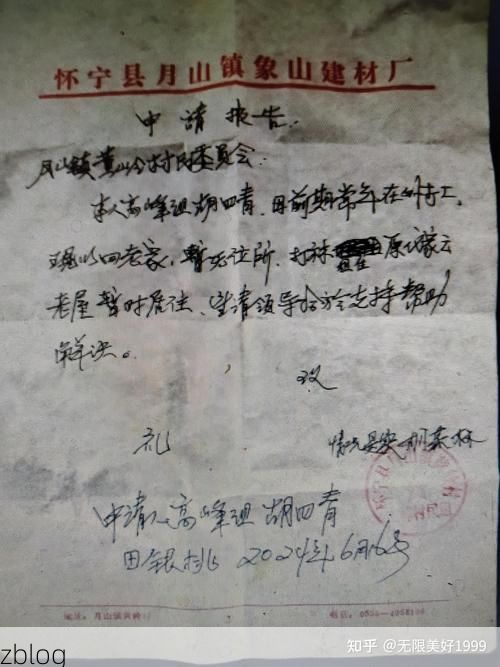 怀宁县月山镇象山建材厂
申请报告
月山镇黄岭村村民委员会:
本人高峰组胡四青,因前期常年在外打工,
现以回老家,暂无住所,打
老屋暂时居住,望请领导给于支持帮助
解决。
致
礼
情况是实
申请人高峰组 胡四青
田银桃 2024年6月16号
地址:月山镇黄岭
电话:
zblog
知乎 @无限美好1999